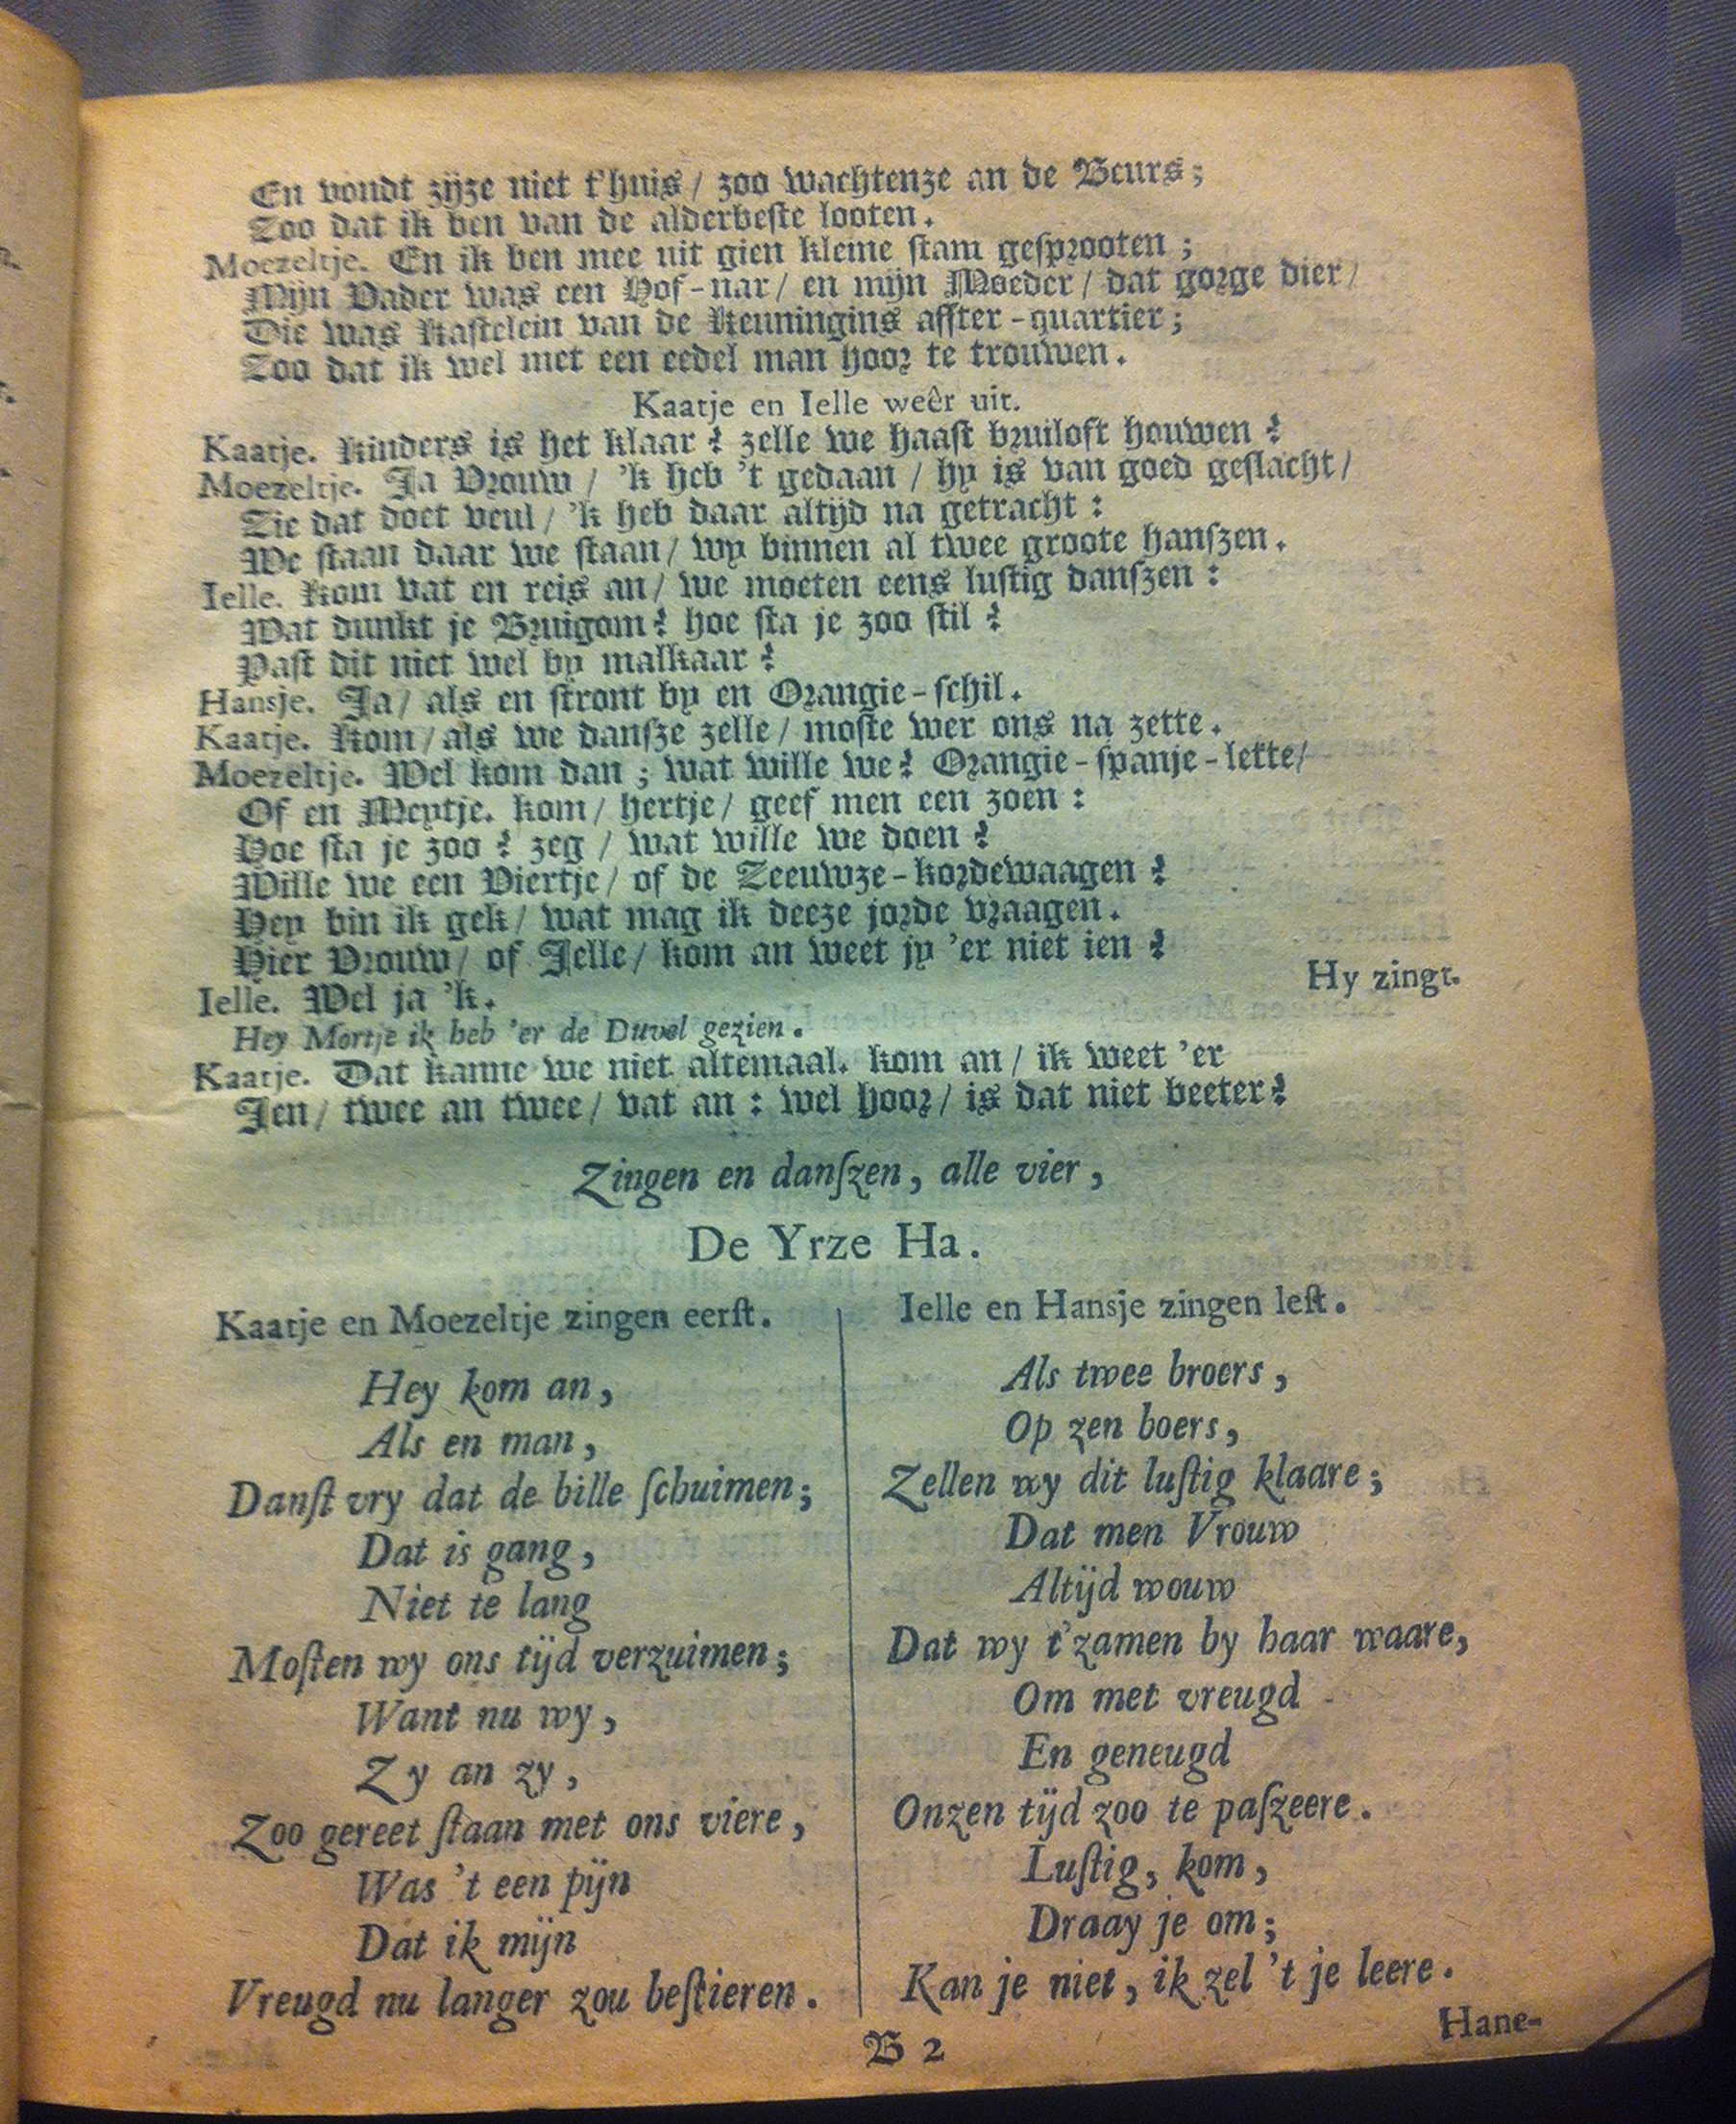 En vondt zijze niet t'huis / zoo wachtenze an de Beurs;
Zoo dat ik ben van de alderbeſte looten.
Moezeltje. En ik ben mee uit gien kleine ſtam geſprooten;
Mijn Vader was een Hof-nar / en mijn Moeder / dat gorge dier /
Die was Kaſtelein van de Keuningins affter-quartier;
Zoo dat ik wel met een eedel man hoor te trouwen.
Kaatje en Ielle weêr uit.
Kaatje. Kinders is het klaar? zelle we haaſt bruiloft houwen?
Moezeltje. Ja Vrouw / 'k heb 't gedaan / hy is van goed geſlacht /
Zie dat doet veul / 'k heb daar altijd na getracht:
We ſtaan daar we ſtaan / wy binnen al twee groote hanſzen.
Ielle. Kom vat en reis an / we moeten eens luſtig danſzen:
Wat dunkt je Bruigom? hoe ſta je zoo ſtil?
Paſt dit niet wel by malkaar?
Hansje. Ja / als en ſtront by en Orangie-ſchil.
Kaatje. Kom / als we danſze zelle / moſte wer ons na zette.
Moezeltje. Wel kom dan; wat wille we? Orangie-ſpanje-lette /
Of en Meytje. kom / hertje / geef men een zoen:
Hoe ſta je zoo? zeg / wat wille we doen?
Wille we een Viertje / of de Zeeuwze-kordewaagen?
Hey bin ik gek / wat mag ik deeze jorde vraagen.
Hier Vrouw / of Jelle / kom an weet jy 'er niet ien?
Ielle. Wel ja 'k.
Hy zingt.
Hey Mortje ik heb 'er de Duvel gezien.
Kaatje. Dat kanne we niet altemaal. kom an / ik weet 'er
Jen / twee an twee / vat an: wel hoor / is dat niet beeter?
Zingen en danſzen, alle vier,
De Yrze Ha.
Kaatje en Moezeltje zingen eerſt.
Hey kom an,
Als en man,
Danſt vry dat de bille ſchuimen;
Dat is gang,
Niet te lang
Moſten wy ons tijd verzuimen;
Want nu wy,
Zy an zy,
Zoo gereet ſtaan met ons viere,
Was 't een pijn
Dat ik mijn
Vreugd nu langer zou beſtieren.
Ielle en Hansje zingen leſt.
Als twee broers,
Op zen boers,
Zellen wy dit luſtig klaare;
Dat men Vrouw
Altijd wouw
Dat wy t'zamen by haar waare,
Om met vreugd
En geneugd
Onzen tijd zoo te paſzeere.
Luſtig, kom,
Draay je om;
Kan je niet, ik zel 't je leere.
B 2
Hane-